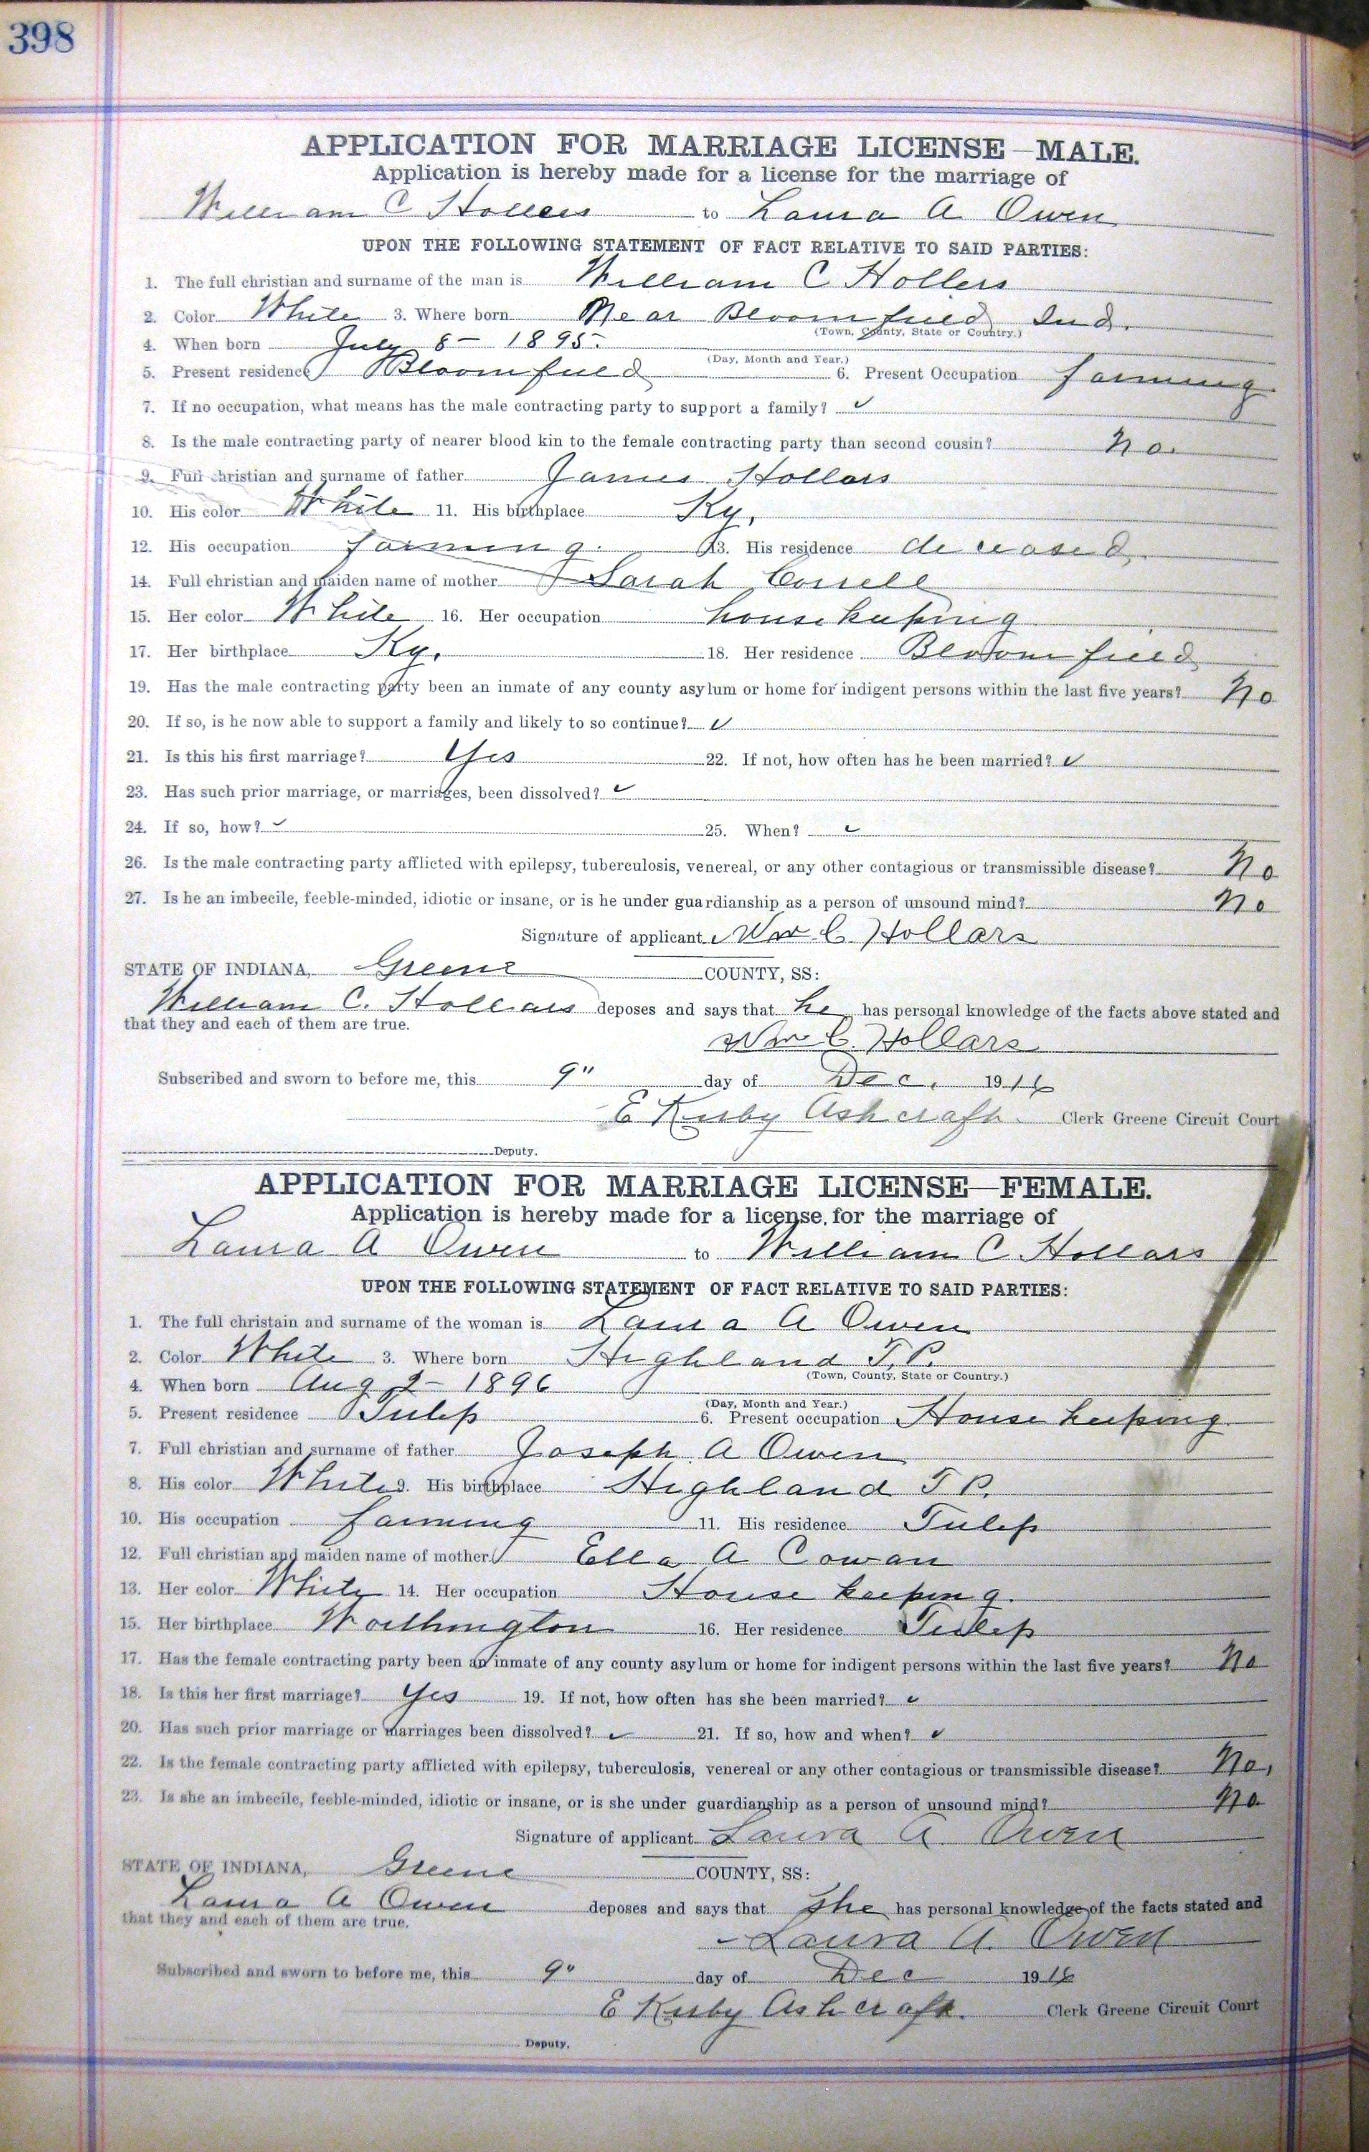 398
APPLICATION FOR MARRIAGE LICENSE—MALE.
Application is hereby made for a license for the marriage of
William C Hollers to Laura A Owen
UPON THE FOLLOWING STATEMENT OF FACT RELATIVE TO SAID PARTIES:
1. The full christian and surname of the man is William C Hollers
2. Color White 3. Where born Near Bloomfield Ind.
(Town, County, State or Country.)
4. When born July 8 - 1895.
(Day, Month and Year.)
5. Present residence Bloomfield 6. Present Occupation farming
7. If no occupation, what means has the male contracting party to support a family? ✓
8. Is the male contracting party of nearer blood kin to the female contracting party than second cousin? No.
9. Full christian and surname of father James Hollars
10. His color White 11. His birthplace Ky.
12. His occupation farming. 13. His residence deceased.
14. Full christian and maiden name of mother Sarah
15. Her color White 16. Her occupation housekeeping
17. Her birthplace Ky. 18. Her residence Bloomfield
19. Has the male contracting party been an inmate of any county asylum or home for indigent persons within the last five years? No
20. If so, is he now able to support a family and likely to so continue? ✓
21. Is this his first marriage? Yes 22. If not, how often has he been married? ✓
23. Has such prior marriage, or marriages, been dissolved? ✓
24. If so, how? ✓ 25. When? ✓
26. Is the male contracting party afflicted with epilepsy, tuberculosis, venereal, or any other contagious or transmissible disease? No
27. Is he an imbecile, feeble-minded, idiotic or insane, or is he under guardianship as a person of unsound mind? No
Signature of applicant Wm C. Hollars
STATE OF INDIANA, Greene COUNTY, SS:
William C. Hollars deposes and says that he has personal knowledge of the facts above stated and
that they and each of them are true.
Wm C. Hollars
Subscribed and sworn to before me, this 9" day of Dec. 1916
E Kirby Ashcraft. Clerk Greene Circuit Court
Deputy.
APPLICATION FOR MARRIAGE LICENSE—FEMALE.
Application is hereby made for a license for the marriage of
Laura A Owen to William C Hollars
UPON THE FOLLOWING STATEMENT OF FACT RELATIVE TO SAID PARTIES:
1. The full christain and surname of the woman is Laura A Owen
2. Color White 3. Where born Highland T.P.
(Town, County, State or Country.)
4. When born Aug 2 - 1896
(Day, Month and Year.)
5. Present residence Tulip 6. Present occupation House keeping
7. Full christian and surname of father Joseph A Owen
8. His color White 9. His birthplace Highland T P.
10. His occupation farming 11. His residence Tulip
12. Full christian and maiden name of mother Ella A Cowan
13. Her color White 14. Her occupation House keeping.
15. Her birthplace Worthington 16. Her residence Tulip
17. Has the female contracting party been an inmate of any county asylum or home for indigent persons within the last five years? No
18. Is this her first marriage? Yes 19. If not, how often has she been married? ✓
20. Has such prior marriage or marriages been dissolved? ✓ 21. If so, how and when? ✓
22. Is the female contracting party afflicted with epilepsy, tuberculosis, venereal or any other contagious or transmissible disease? No,
23. Is she an imbecile, feeble-minded, idiotic or insane, or is she under guardianship as a person of unsound mind? No
Signature of applicant Laura A. Owen
STATE OF INDIANA, Greene COUNTY, SS:
Laura A Owen deposes and says that she has personal knowledge of the facts stated and
that they and each of them are true.
Laura A. Owen
Subscribed and sworn to before me, this 9" day of Dec 1916
E Kirby Ashcraft. Clerk Greene Circuit Court
Deputy.